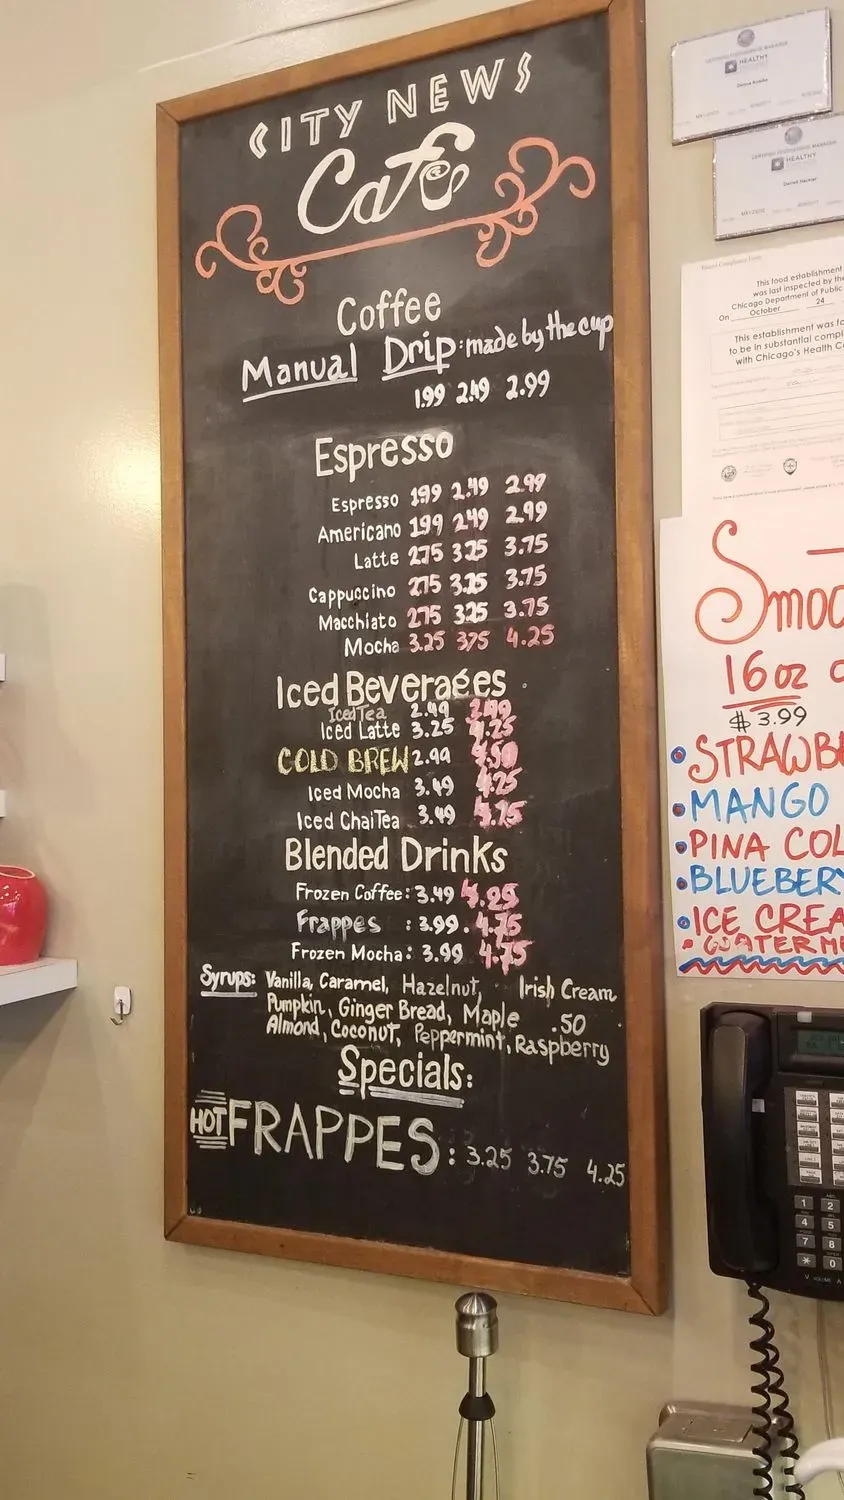 CITY NEWS
Café
Coffee
Manual Drip: made by the cup
1.99 2.49 2.99
Espresso
Espresso 1.99 2.49 2.99
Americano 1.99 2.49 2.99
Latte 2.75 3.25 3.75
Cappuccino 2.75 3.25 3.75
Macchiato 2.75 3.25 3.75
Mocha 3.25 3.75 4.25
Iced Beverages
Iced Tea 2.49
Iced Latte 3.25 4.25
COLD BREW 2.99 4.50
Iced Mocha 3.49 4.25
Iced Chai Tea 3.49 4.75
Blended Drinks
Frozen Coffee: 3.49 4.25
Frappes : 3.99 . 4.75
Frozen Mocha: 3.99 4.75
Syrups: Vanilla, Caramel, Hazelnut, Irish Cream
Pumpkin, Ginger Bread, Maple .50
Almond, Coconut, Peppermint, Raspberry
Specials:
HOT FRAPPES: 3.25 3.75 4.25
HEALTHY
HEALTHY
This food establishment
was last inspected by the
Chicago Department of Public
On October 24
This establishment was fo
to be in substantial compl
with Chicago's Health C
Smoo
16oz
$3.99
• STRAWB
• MANGO
• PINA COL
• BLUEBER
• ICE CREA
• WATERM
1 2
4 5
7 8
* 0
VOLUME